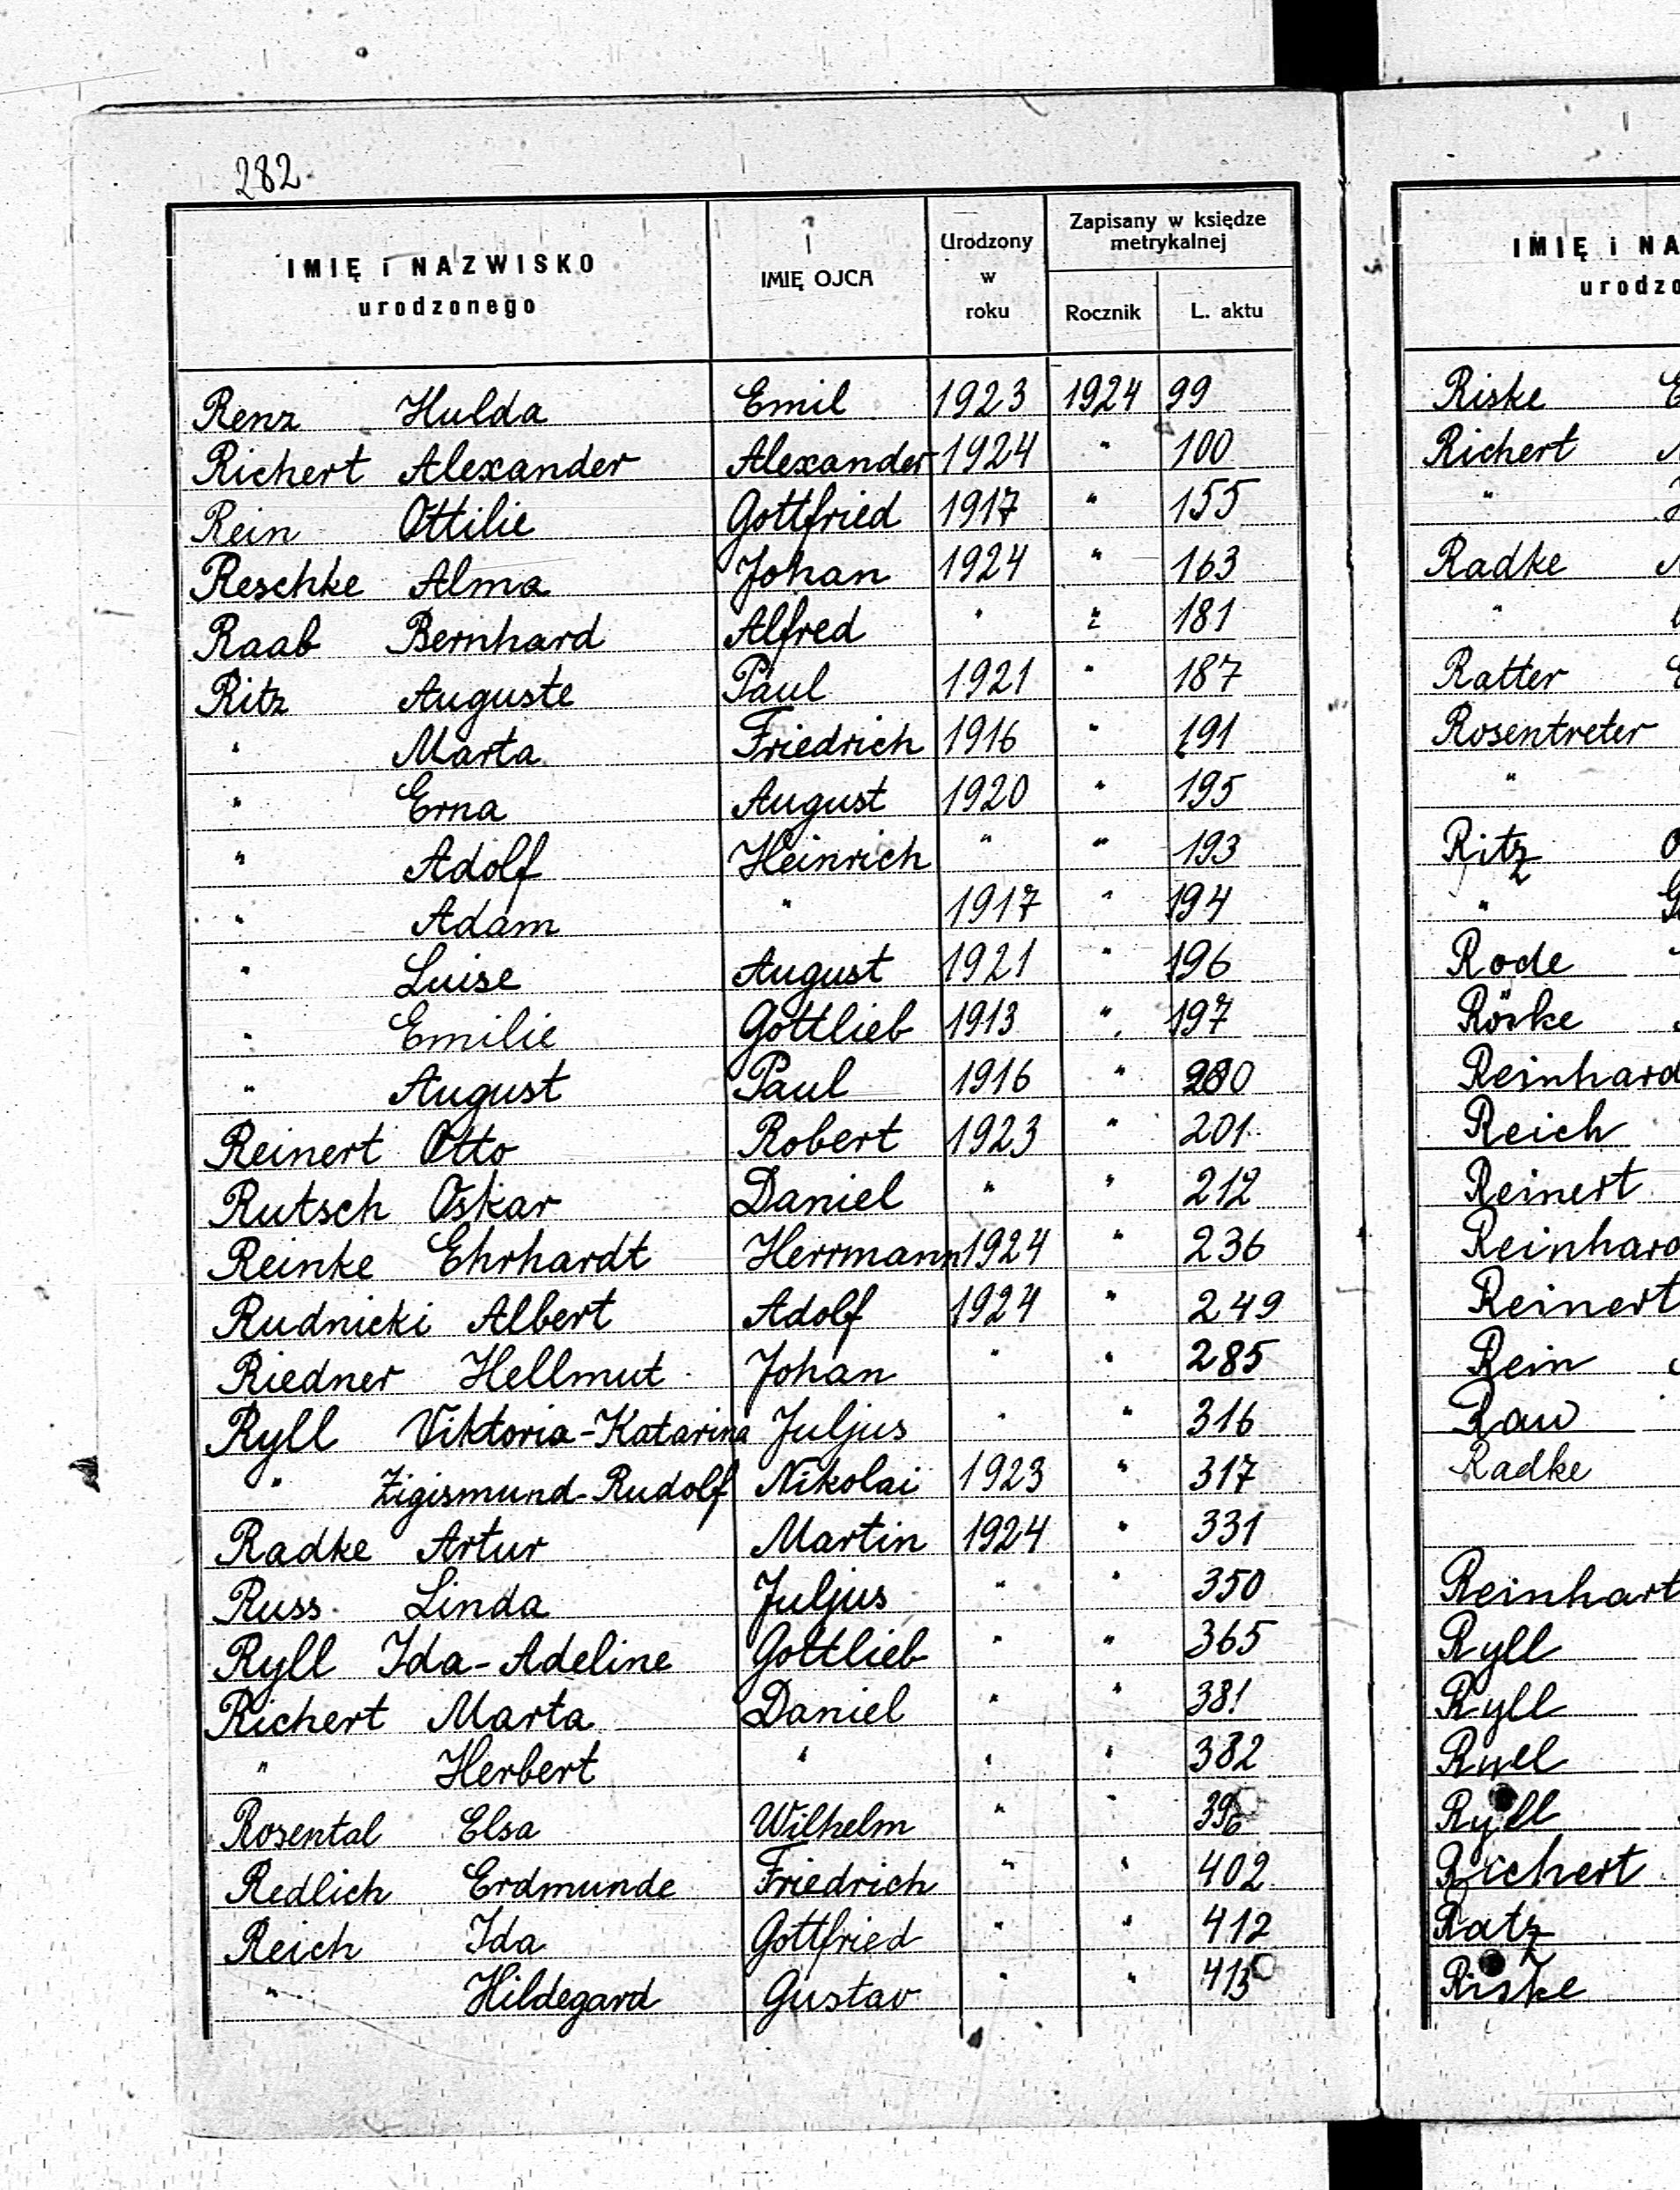 282.
IMIĘ i NAZWISKO
urodzonego
IMIĘ OJCA
Urodzony
w
roku
Zapisany w księdze
metrykalnej
Rocznik L. aktu
Renz Hulda Emil 1923 1924 99
Richert Alexander Alexander 1924 " 100
Rein Ottilie Gottfried 1917 " 155
Reschke Alma Johan 1924 " 163
Raab Bernhard Alfred " " 181
Ritz Auguste Paul 1921 " 187
" Marta Friedrich 1916 " 191
" Erna August 1920 " 195
" Adolf Heinrich " " 193
" Adam " 1917 " 194
" Luise August 1921 " 196
" Emilie Gottlieb 1913 " 197
" August Paul 1916 "
Reinert Otto Robert 1923 " 201
Rutsch Oskar Daniel " " 212
Reinke Ehrhardt Herrmann 1924 " 236
Rudnicki Albert Adolf 1924 " 249
Riedner Hellmut Johan " " 285
Ryll Viktoria-Katarina Juljus " " 316
" Zigismund-Rudolf Nikolai 1923 " 317
Radke Artur Martin 1924 " 331
Russ Linda Juljus " " 350
Ryll Ida-Adeline Gottlieb " " 365
Richert Marta Daniel " " 381
" Herbert " " " 382
Rosental Elsa Wilhelm " " 396
Redlich Erdmunde Friedrich " " 402
Reich Ida Gottfried " " 412
" Hildegard Gustav " " 415
IMIĘ i NA
urodzo
Riske
Richert
"
Radke
"
Ratter
Rosentreter
"
Ritz
"
Rode
Röske
Reinhard
Reich
Reinert
Reinhard
Reinert
Rein
Rau
Radke
Reinhart
Ryll
Ryll
Ryll
Richert
Ratz
Riske